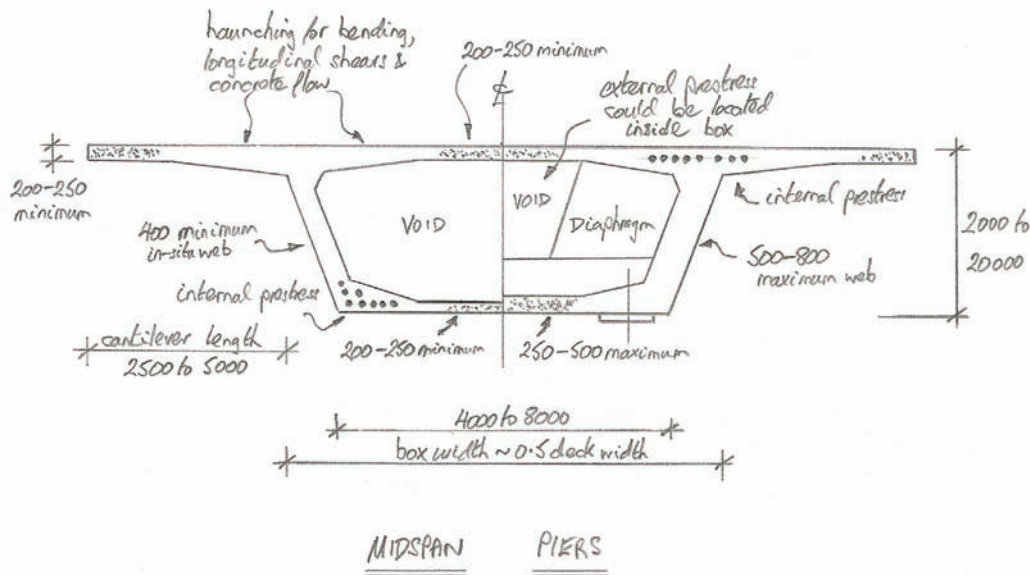 haunching for bending,
longitudinal shears &
concrete flow
200-250 minimum
℄
external prestress
could be located
inside box
200-250
minimum
VOID
VOID
Diaphragm
internal prestress
400 minimum
in-situ web
500-800
maximum web
2000 to
20000
internal prestress
cantilever length
2500 to 5000
200-250 minimum
250-500 maximum
4000 to 8000
box width ~ 0.5 deck width
MIDSPAN PIERS